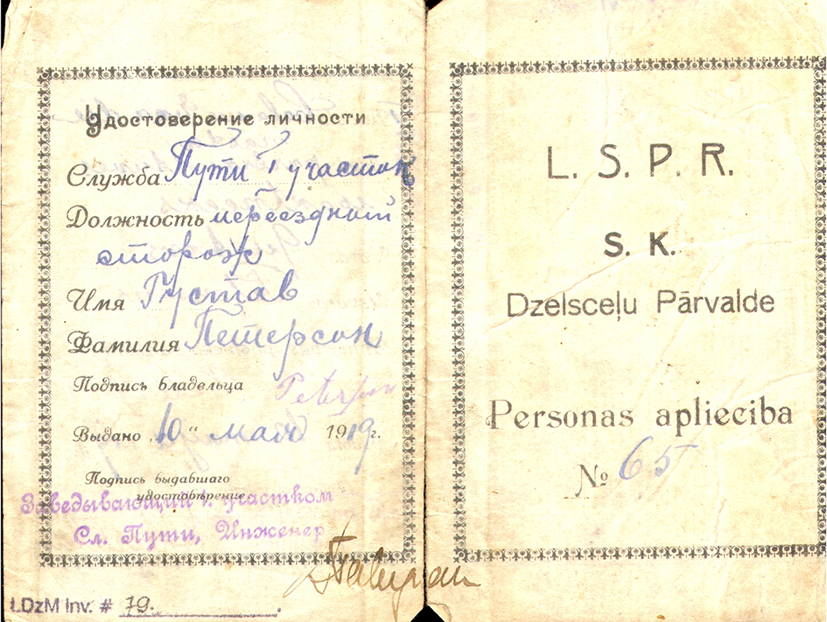 Удостоверение личности
Служба Пути 1 участок
Должность переездный
сторож
Имя Густав
Фамилия Петерсон
Подпись владельца
Выдано „10" мая 1919г.
Подпись выдавшаго
удостовѣрение
Заведывающий 1. участком
Сл. Пути, Инженер
LDzM Inv. # 79.
L. S. P. R.
S. K.
Dzelsceļu Pārvalde
Personas apliecība
№ 65